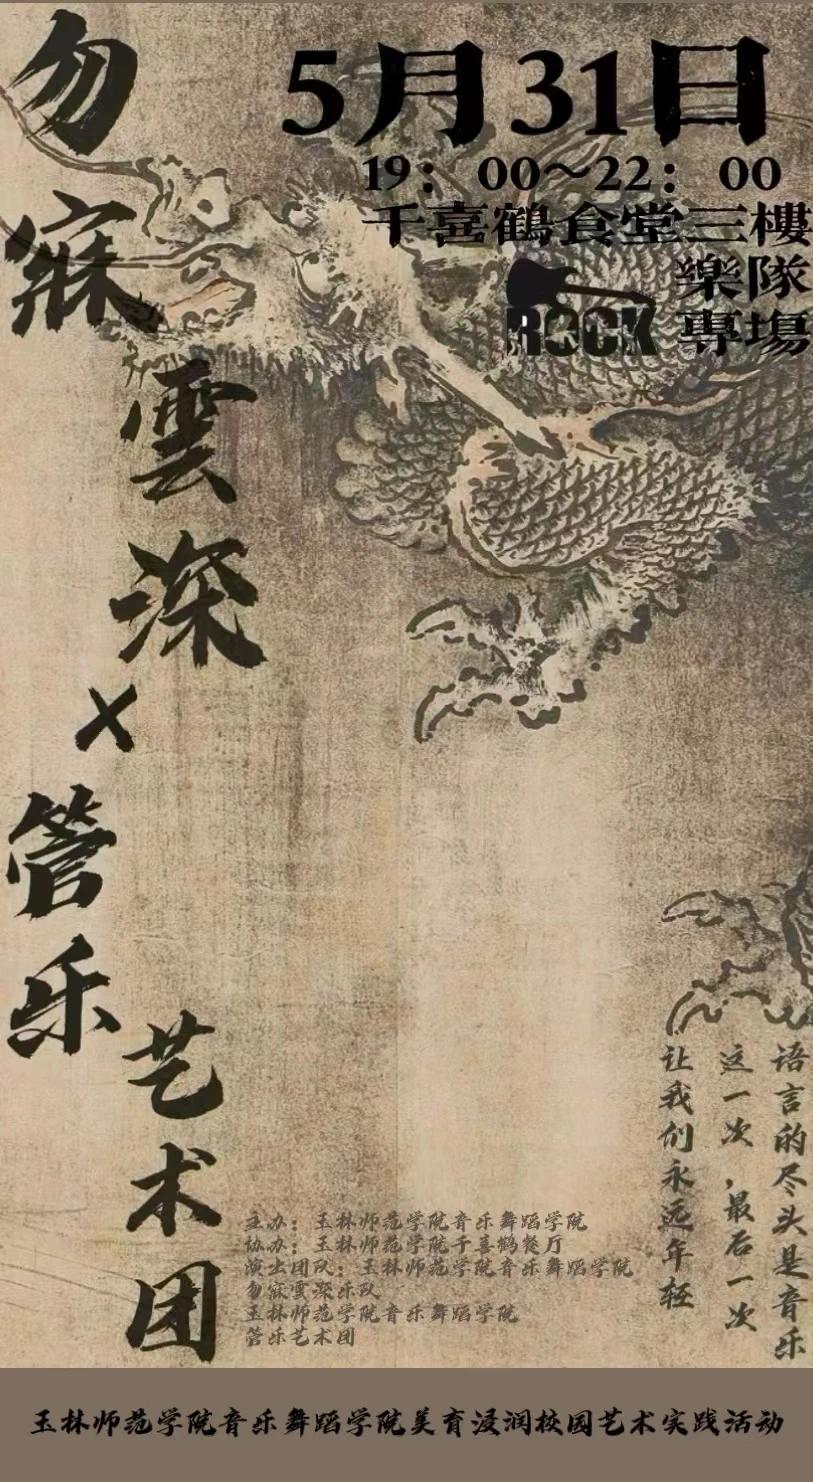 勿寐雲深
×
管乐
艺术团
5月31日
19：00～22：00
千喜鶴食堂三樓
樂隊
ROCK 專場
语言的尽头是音乐
这一次，最后一次
让我们永远年轻
主办：玉林师范学院音乐舞蹈学院
协办：玉林师范学院千喜鹤餐厅
演出团队：玉林师范学院音乐舞蹈学院
勿寐雲深乐队
玉林师范学院音乐舞蹈学院
管乐艺术团
玉林师范学院音乐舞蹈学院美育浸润校园艺术实践活动